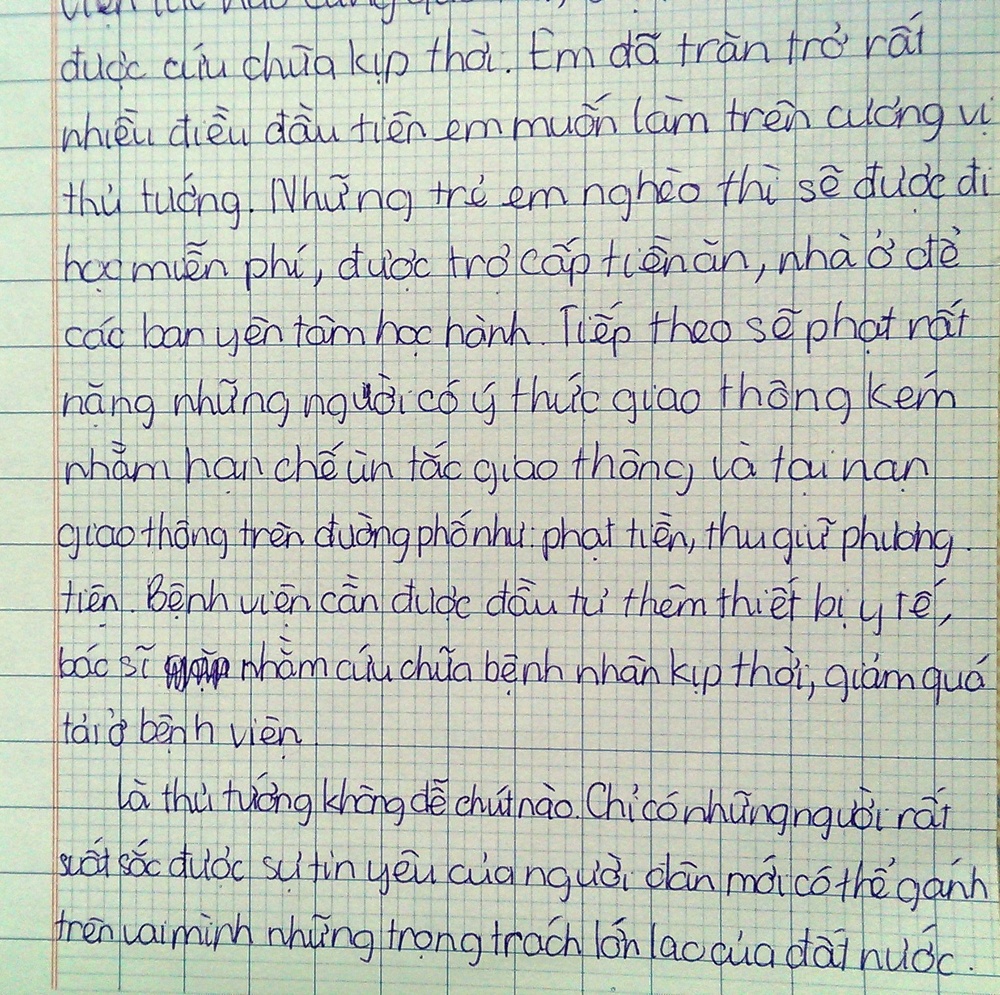 được cứu chữa kịp thời. Em đã trăn trở rất
nhiều điều đầu tiên em muốn làm trên cương vị
thủ tướng. Những trẻ em nghèo thì sẽ được đi
học miễn phí, được trợ cấp tiền ăn, nhà ở để
các bạn yên tâm học hành. Tiếp theo sẽ phạt rất
nặng những người có ý thức giao thông kém
nhằm hạn chế ùn tắc giao thông và tai nạn
giao thông trên đường phố như: phạt tiền, thu giữ phương
tiện. Bệnh viện cần được đầu tư thêm thiết bị y tế,
bác sĩ nhằm cứu chữa bệnh nhân kịp thời, giảm quá
tải ở bệnh viện
Là thủ tướng không dễ chút nào. Chỉ có những người rất
suất sắc được sự tin yêu của người dân mới có thể gánh
trên vai mình những trọng trách lớn lao của đất nước.